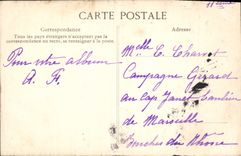 CARTE POSTALE
Correspondance
Tous les pays étrangers n'acceptent pas la
correspondance au recto, se renseigner à la poste.
Pour votre album
Adresse
Melle C. Charvet
Campagne Gérard
au Cap Janet banlieue
de Marseille
Bouches du Rhône